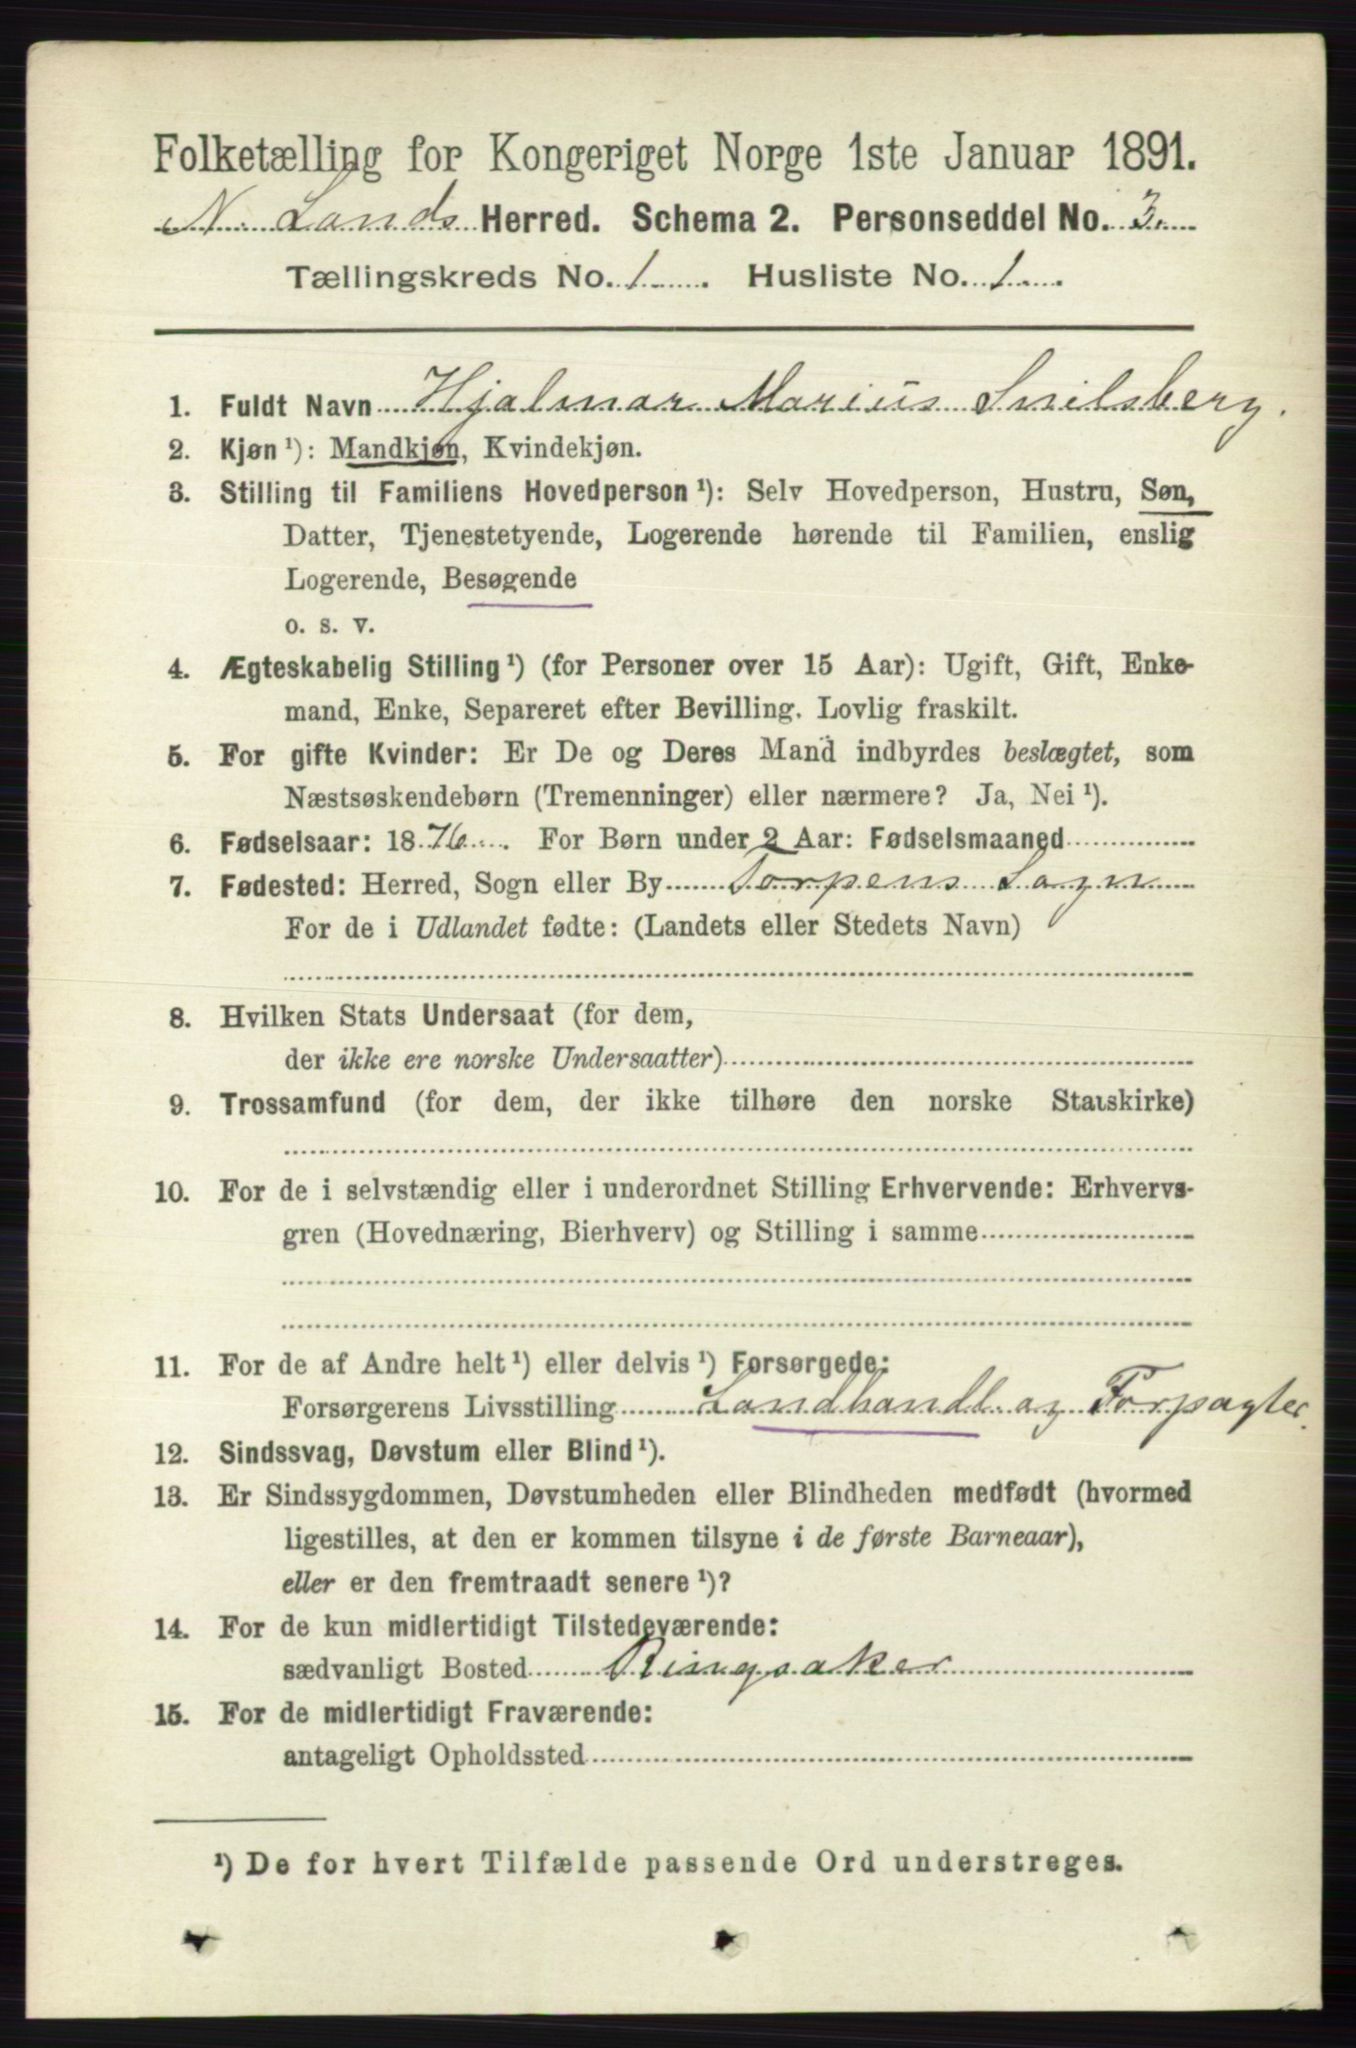 Folketælling for Kongeriget Norge 1ste Januar 1891.
N. Lands Herred. Schema 2. Personseddel No. 3.
Tællingskreds No. 1. Husliste No. 1.
1. Fuldt Navn Hjalmar Marius Snilsberg.
2. Kjøn ¹): Mandkjøn, Kvindekjøn.
3. Stilling til Familiens Hovedperson ¹): Selv Hovedperson, Hustru, Søn,
Datter, Tjenestetyende, Logerende hørende til Familien, enslig
Logerende, Besøgende
o. s. v.
4. Ægteskabelig Stilling ¹) (for Personer over 15 Aar): Ugift, Gift, Enke-
mand, Enke, Separeret efter Bevilling. Lovlig fraskilt.
5. For gifte Kvinder: Er De og Deres Mand indbyrdes beslægtet, som
Næstsøskendebørn (Tremenninger) eller nærmere? Ja, Nei ¹).
6. Fødselsaar: 1876. For Børn under 2 Aar: Fødselsmaaned
7. Fødested: Herred, Sogn eller By Torpens Sogn
For de i Udlandet fødte: (Landets eller Stedets Navn)
8. Hvilken Stats Undersaat (for dem,
der ikke ere norske Undersaatter)
9. Trossamfund (for dem, der ikke tilhøre den norske Statskirke)
10. For de i selvstændig eller i underordnet Stilling Erhvervende: Erhvervs-
gren (Hovednæring, Bierhverv) og Stilling i samme
11. For de af Andre helt ¹) eller delvis ¹) Forsørgede:
Forsørgerens Livsstilling Landhandl. og Forpagter.
12. Sindssvag, Døvstum eller Blind ¹).
13. Er Sindssygdommen, Døvstumheden eller Blindheden medfødt (hvormed
ligestilles, at den er kommen tilsyne i de første Barneaar),
eller er den fremtraadt senere ¹)?
14. For de kun midlertidigt Tilstedeværende:
sædvanligt Bosted Ringsaker
15. For de midlertidigt Fraværende:
antageligt Opholdssted
¹) De for hvert Tilfælde passende Ord understreges.